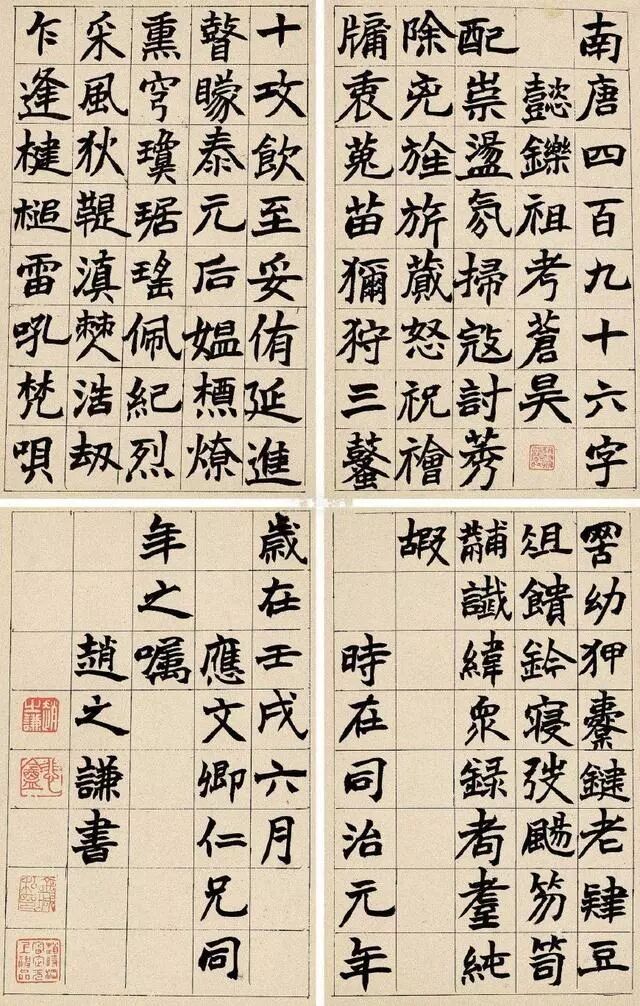 南唐四百九十六字
懿鑠祖考蒼昊
配祟盪氛掃寇討莠
除兇旌旂蕆怒祝禬
牖衷蒐苗獮狩三鼜
十攻飲至妥侑延進
瞽矇泰元后媼槱燎
熏穹瓊琚瑤佩紀烈
采風狄鞮滇僰浩劫
乍逢楗槌雷吼梵唄
幼狎櫜鍵老肄豆
俎饋鈴寢弢颺笏笥
黼讖緯衆録耇耋純
嘏
時在同治元年
歲在壬戌六月
應文卿仁兄同
年之嘱
趙之謙書
趙之謙
悲盦